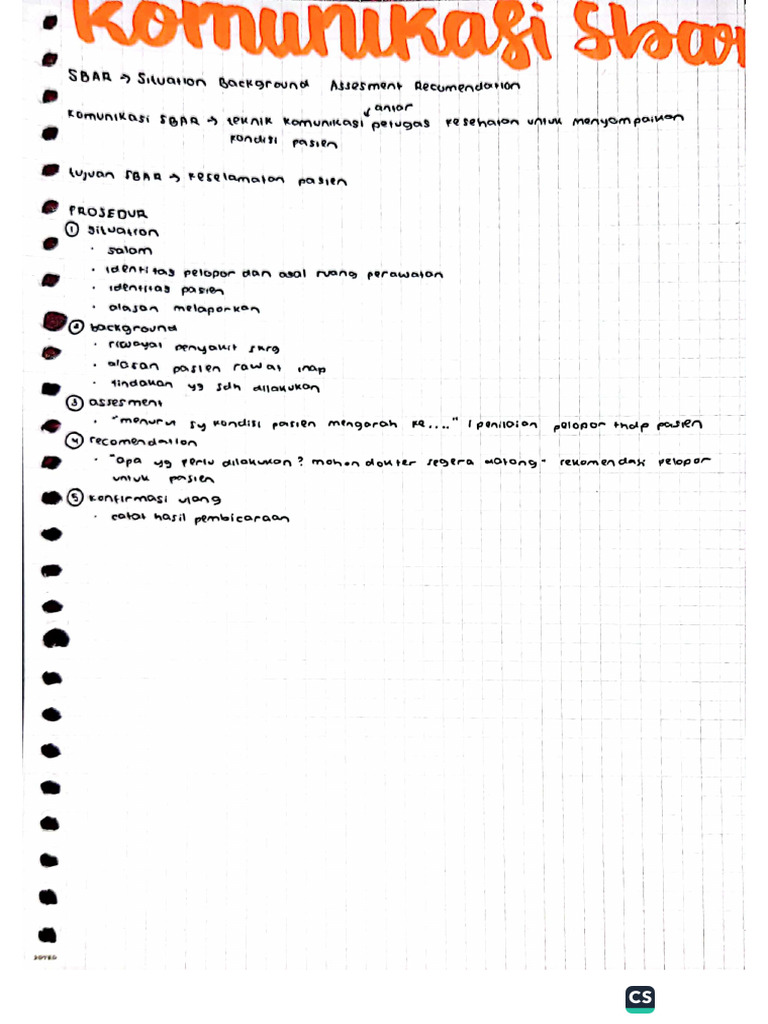 Komunikasi Sbar
SBAR → Situation Background Assesment Recumendation
antar
Komunikasi SBAR → teknik komunikasi petugas kesehatan untuk menyampaikan
kondisi pasien
tujuan SBAR → keselamatan pasien
PROSEDUR
① Situation
• salam
• identitas pelapor dan asal ruang perawatan
• identitas pasien
• alasan melaporkan
② background
• riwayat penyakit skrg
• alasan pasien rawat inap
• tindakan yg sdh dilakukan
③ assesment
• "menurut sy kondisi pasien mengarah ke...." / penilaian pelapor thdp pasien
④ recomendation
• "apa yg perlu dilakukan? mohon dokter segera datang" rekomendasi pelapor
untuk pasien
⑤ konfirmasi ulang
• catat hasil pembicaraan
JOYKO
CS